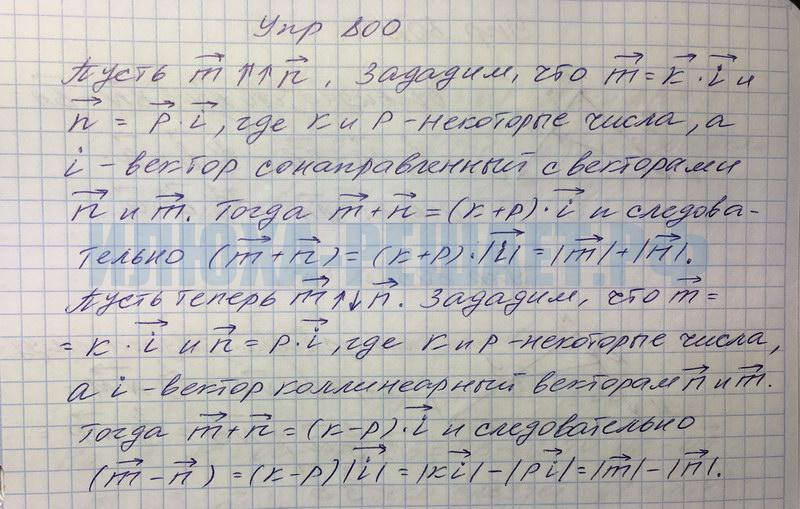 Упр 800
Пусть m⃗ ↑↑ n⃗, Зададим, что m⃗ = k⃗ · i⃗ и
n⃗ = p⃗ · i⃗, где k и p - некоторые числа, а
i - вектор сонаправленный с векторами
n⃗ и m⃗. Тогда m⃗ + n⃗ = (k+p) · i⃗ и следова-
тельно (m⃗ + n⃗) = (k+p) · |i⃗| = |m⃗| + |n⃗|.
ИЛЮХА-РЕШАЕТ.РФ
Пусть теперь m⃗ ↑↓ n⃗. Зададим, что m⃗ =
= k · i⃗ и n⃗ = p · i⃗, где k и p - некоторые числа,
а i - вектор коллинеарный векторам n⃗ и m⃗.
Тогда m⃗ + n⃗ = (k-p) · i⃗ и следовательно
(m⃗ - n⃗) = (k-p) |i⃗| = |ki⃗| - |pi⃗| = |m⃗| - |n⃗|.